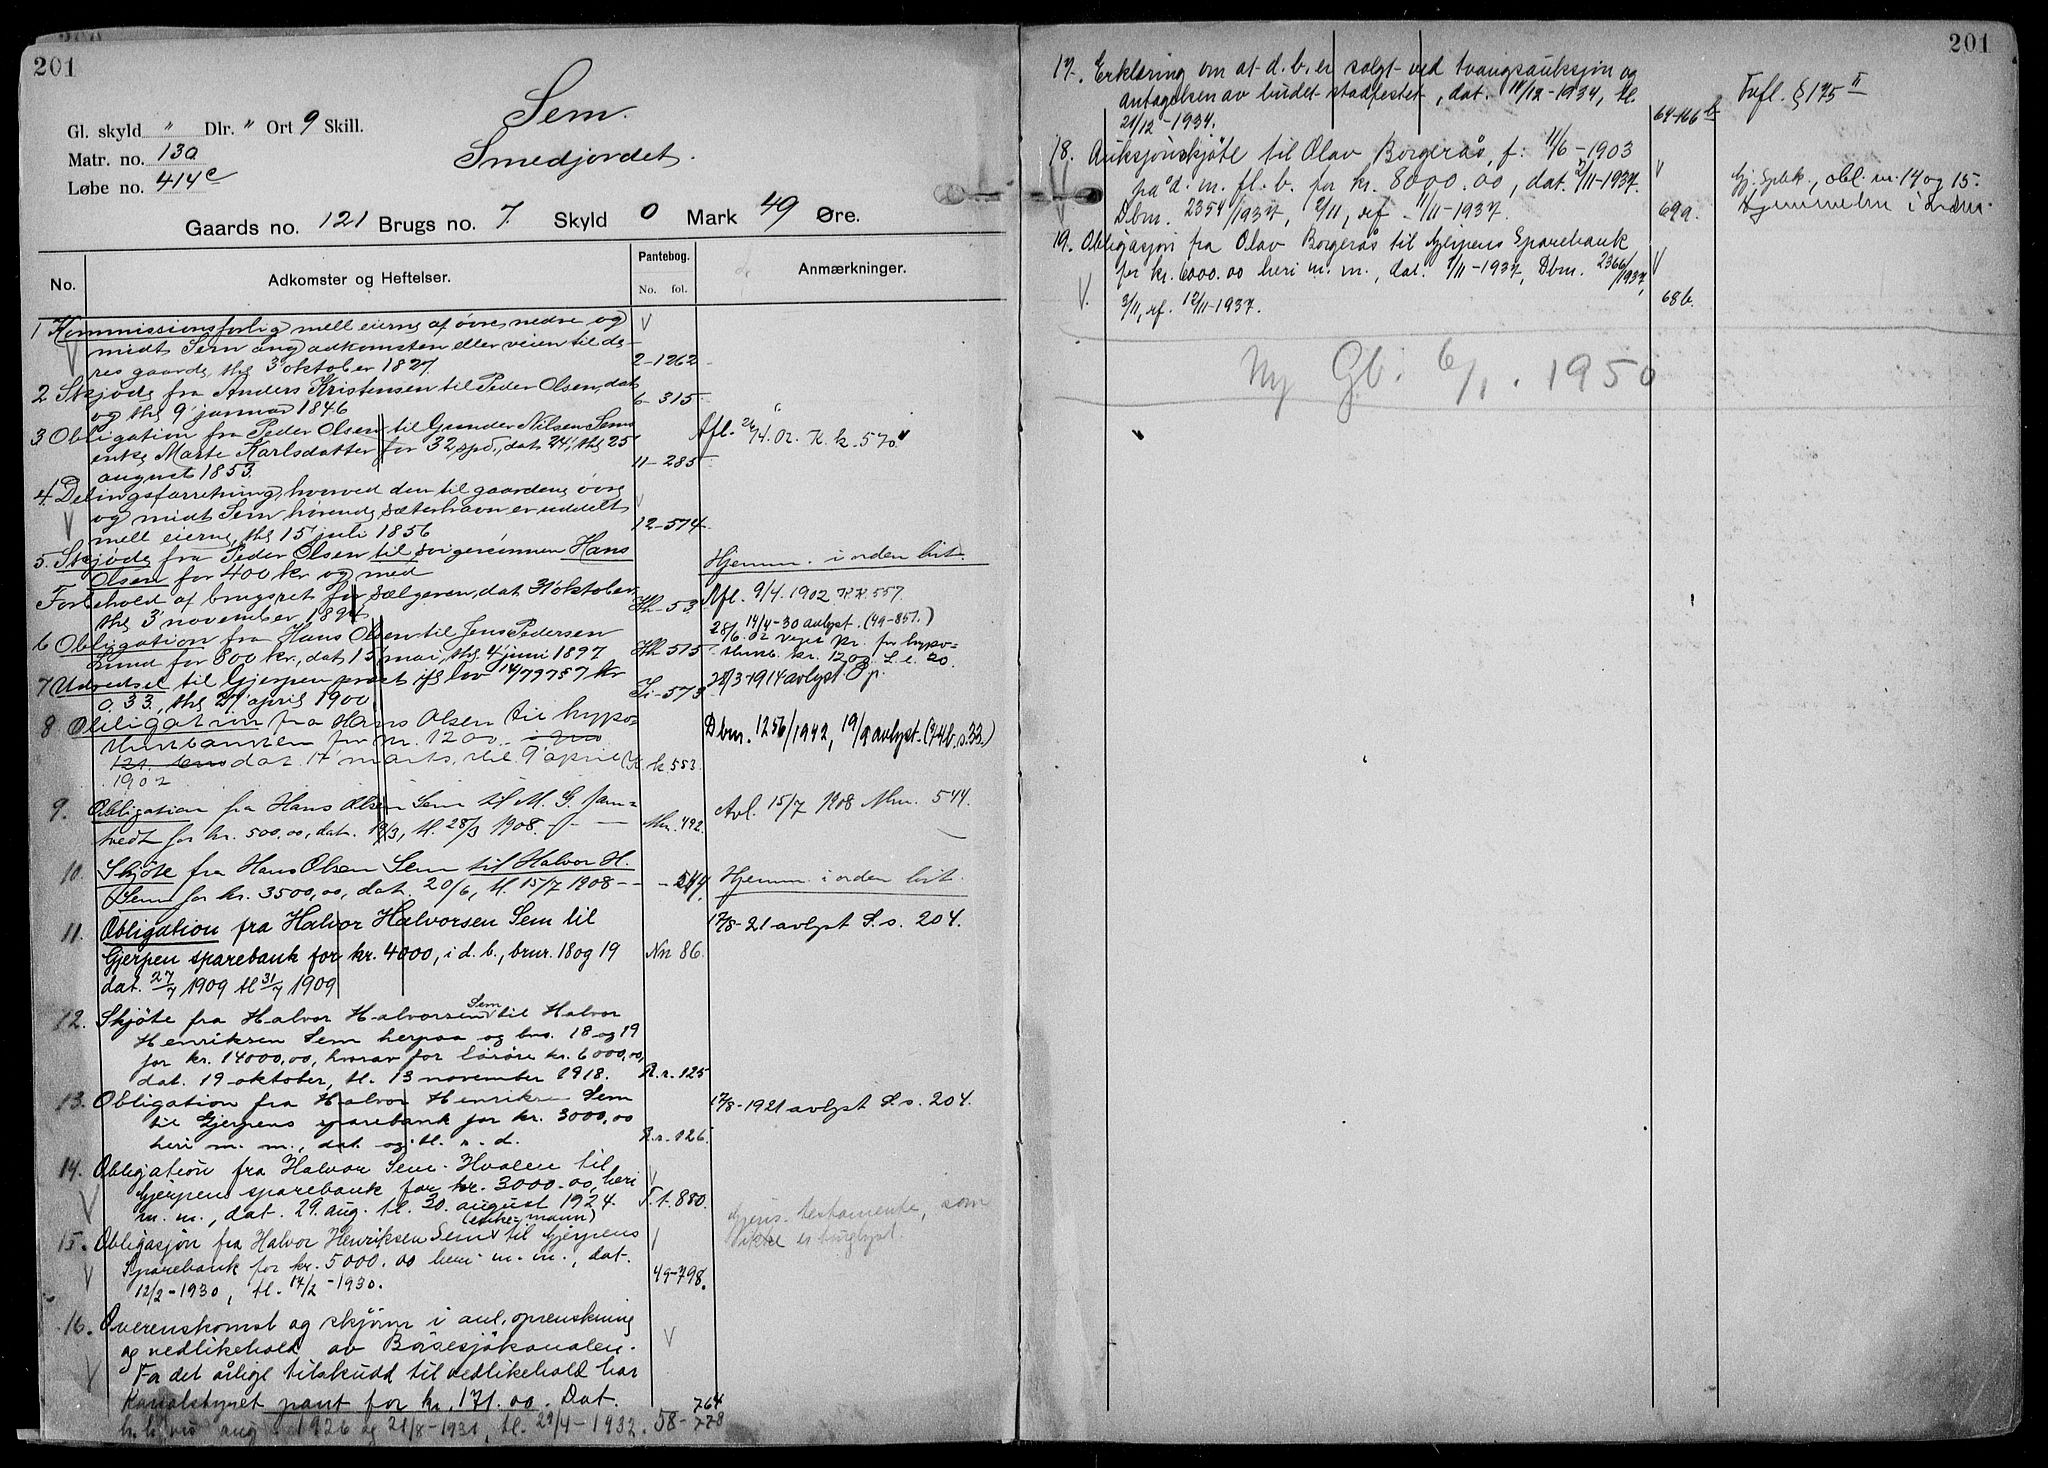 201
Sem.
Smedjordet.
Gl. skyld " Dlr. " Ort 9 Skill.
Matr. no. 130
Løbe no. 414c
Gaards no. 121 Brugs no. 7. Skyld 0 Mark 49 Øre.
No. Adkomster og Heftelser. Pantebog. No. fol. Anmærkninger.
1 Kommissionsforlig mell eierne af övre, nedre og
midt Sem ang adkomsten eller veien til de-
res gaarde, thl 3 oktober 1827. 2-1262
2 Skjöde fra Anders Kristensen til Peder Olsen, dat
og thl 9 januar 1846 6-315
3 Obligation fra Peder Olsen til Gunder Nilsen Sems
enke Marte Karlsdatter for 32 spd., dat 24, thl 25
august 1853. 11-285 Afl. 26/4.02. K. k. 570
4. Delingsforretning, hvorved den til gaardene övre
og midt Sem hörende sæterhavn er uddelt
mell eierne, thl 15 juli 1856 12-574
5. Skjöde fra Peder Olsen til svigersönnen Hans
Olsen for 400 kr og med Hjemm. i orden hit.
Forbehold af brugsret for sælgeren, dat 31 oktober,
thl 3 november 1894 Hh-53. Afl. 9/4. 1902 K.K. 557.
6 Obligation fra Hans Olsen til Jens Pedersen
Lund for 800 kr., dat 15 mai, thl 4 juni 1897 Hh 515 14/4-30 avlyst. (49-851.)
28/6. 02 viger pr. for hypo-
thekb. kr. 1200. L. l. 20.
7 Udvidsel til Gjerpen prest ifl lov 14/7 9757 kr
0,33, thl 27 april 1900. Ii-573 28/3-1914 avlyst. P p.
8 Obligation fra Hans Olsen til hypo-
thekbanken for kr. 1200
dat. 17 marts, thl. 9 april
1902 K. k. 553. Dbnr. 1256/1942, 19/9 avlyst. (74b. s. 33.)
9. Obligation fra Hans Olsen Sem til M. G. Jam-
tvedt for kr. 500,00, dat. 19/3, tl. 28/3 1908. Mm. 492. Avl. 15/7 1908 Mm. 544.
10. Skjöte fra Hans Olsen Sem til Halvor H.
Sem for kr. 3500,00, dat. 20/6, tl. 15/7 1908 - 544. Hjemm. i orden hit.
11. Obligation fra Halvor Halvorsen Sem til
Gjerpen sparebank for kr. 4000, i d. b., brnr. 18 og 19
dat. 27/7 1909 tl 31/7 1909 Nn 86. 17/8-21 avlyst S. s. 204.
12. Skjöte fra Halvor Halvorsen Sem til Halvor
Henriksen Sem herpaa og bno. 18 og 19
for kr. 14000,00, hvorav for lösöre kr. 6000,00,
dat. 19 oktober, tl. 13 november 1918. R. r. 125
13. Obligation fra Halvor Henriksen Sem
til Gjerpens sparebank for kr. 3000,00
heri m. m., dat. og tl. s. d. R. r. 126. 17/8-1921 avlyst S. s. 204.
14. Obligation fra Halvor Sem-Hvalen til
Gjerpens sparebank for kr. 3000.00, heri
m. m., dat. 29. aug. tl. 30. august 1924. T. t. 880.
15. Obligasjon fra Halvor Henriksen Sem (enke-mann) til Gjerpens
Sparebank for kr. 5000.00 heri m. m., dat.
12/2-1930, tl. 14/2-1930. 49-798. Gjens. testamente, som
ikke er tinglyst.
16. Overenskomst og skjönn i anl. oprenskning
og vedlikehold av Börsesjökanalen.
For det årlige tilskudd til vedlikehold har
Kanalstyret pant for kr. 171.00. Dat.
aug 1926 og 21/8-1931, tl. 29/4-1932. 58-764 778
201
17. Erklæring om at d. b. er solgt ved tvangsauksjon og
antagelsen av budet stadfestet, dat. 11/12-1934, tl.
21/12-1934. 64-166 b Tvfl. § 175 II
18. Auksjonsskjöte til Olav Borgerås, f. 11/6-1903
på d. m. fl. b. for kr. 8000.00, dat. 2/11-1937.
Dbnr. 2354/1937, 2/11, ref. 11/11-1937. 69a. Gj. Spbk., obl. nr. 14 og 15.
Hjemmelen i orden.
19. Obligasjon fra Olav Borgerås til Gjerpens Sparebank
for kr. 6000.00 heri m. m., dat. 1/11-1937, Dbnr. 2366/1937,
3/11, rf. 12/11-1937. 68b.
Ny Gb. 6/1. 1950